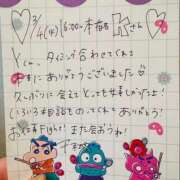 3/4(水)16:00〜本指名
Kさん
Yくん、タイミング合わせてくれて
本当にありがとうございました♡
久しぶりに会えてとっても嬉しかったよ!
いろいろ相談ものってくれてありがとう!
お仕事Fight! また会おうね!